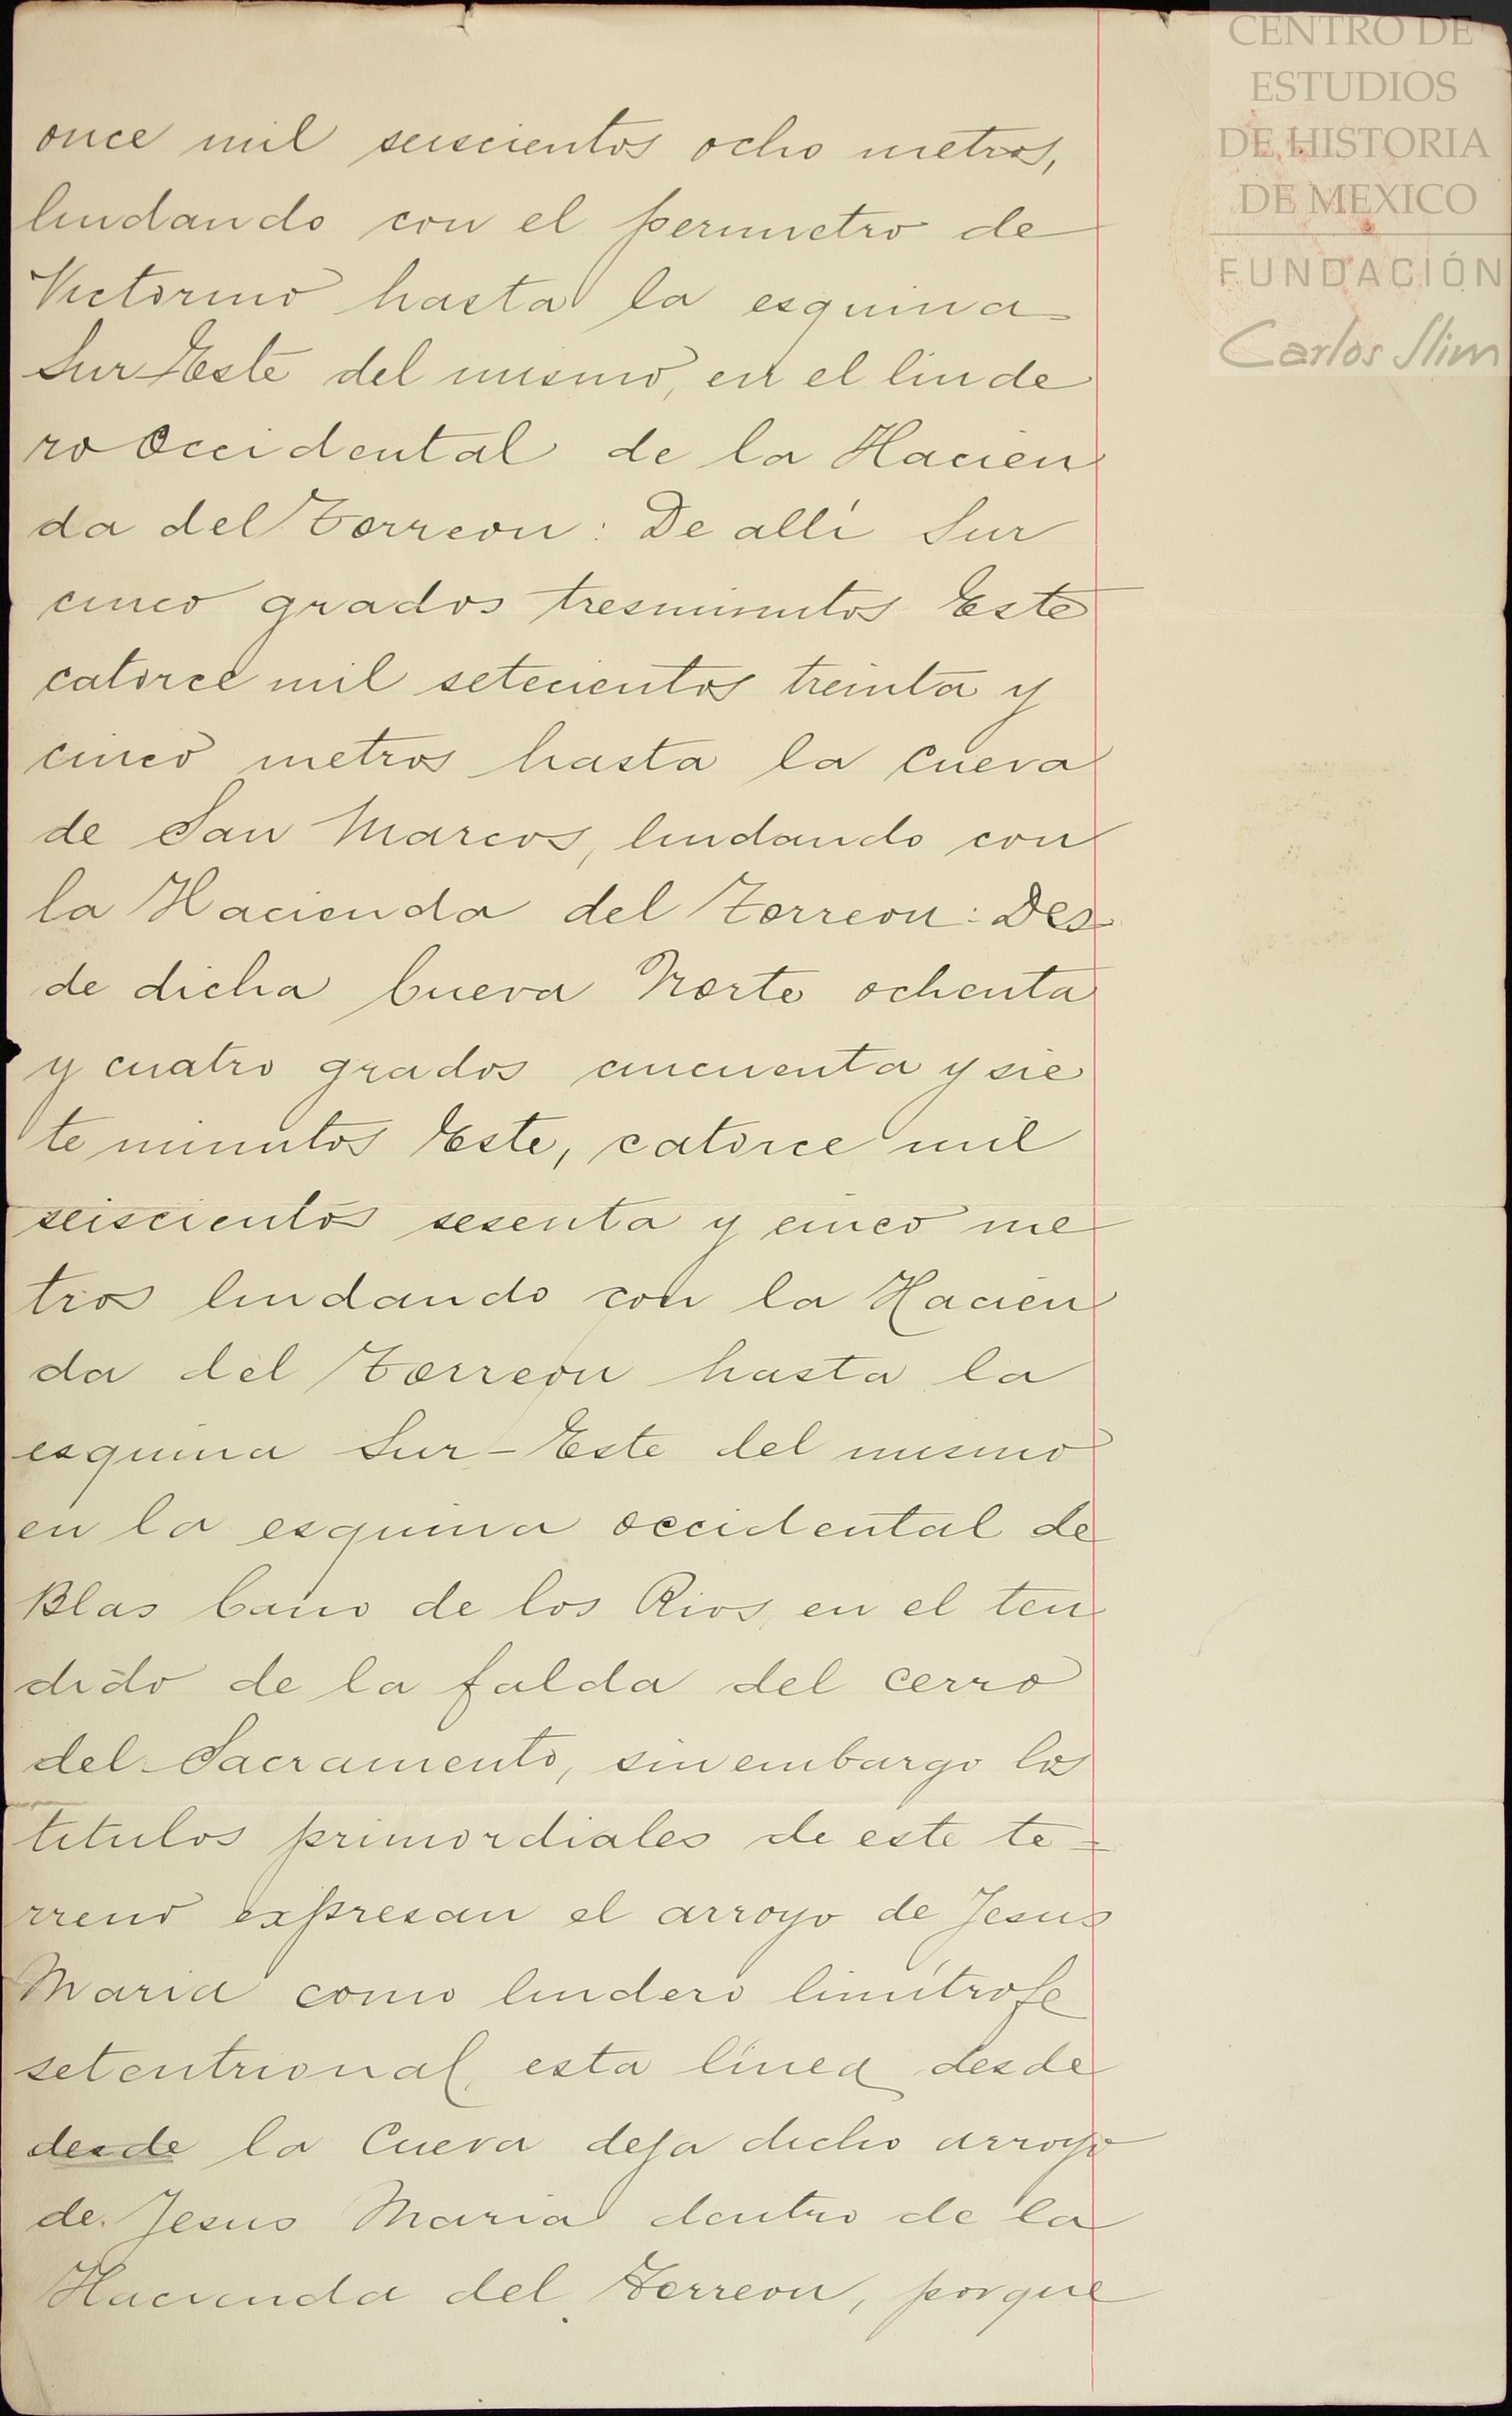 CENTRO DE
ESTUDIOS
DE HISTORIA
DE MEXICO
FUNDACIÓN
Carlos Slim
once mil seiscientos ocho metros,
lindando con el perimetro de
Victorino hasta la esquina
Sur Este del mismo, en el linde
ro Occidental de la Hacien
da del Torreon: De allí Sur
cinco grados tres minutos Este
catorce mil setecientos treinta y
cinco metros hasta la Cueva
de San Marcos, lindando con
la Hacienda del Torreon: Des
de dicha Cueva Norte ochenta
y cuatro grados cincuenta y sie
te minutos Este, catorce mil
seiscientos sesenta y cinco me
tros lindando con la Hacien
da del Torreon hasta la
esquina Sur-Este del mismo
en la esquina occidental de
Blas Cano de los Rios, en el ten
dido de la falda del cerro
del Sacramento, sin embargo los
titulos primordiales de este te=
rreno expresan el arroyo de Jesus
Maria como lindero limítrofe
setentrional, esta línea desde
desde la Cueva deja dicho arroyo
de Jesus Maria dentro de la
Hacienda del Torreon, porque